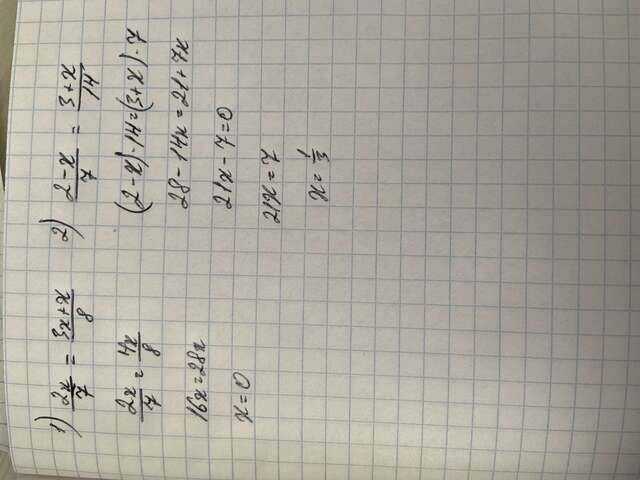 1) 2x/7 = 3x+x/8
2x/7 = 4x/8
16x=28x
x=0
2) 2-x/7 = 3+x/14
(2-x)·14=(3+x)·7
28-14x=21+7x
21x-7=0
21x=7
x=1/3